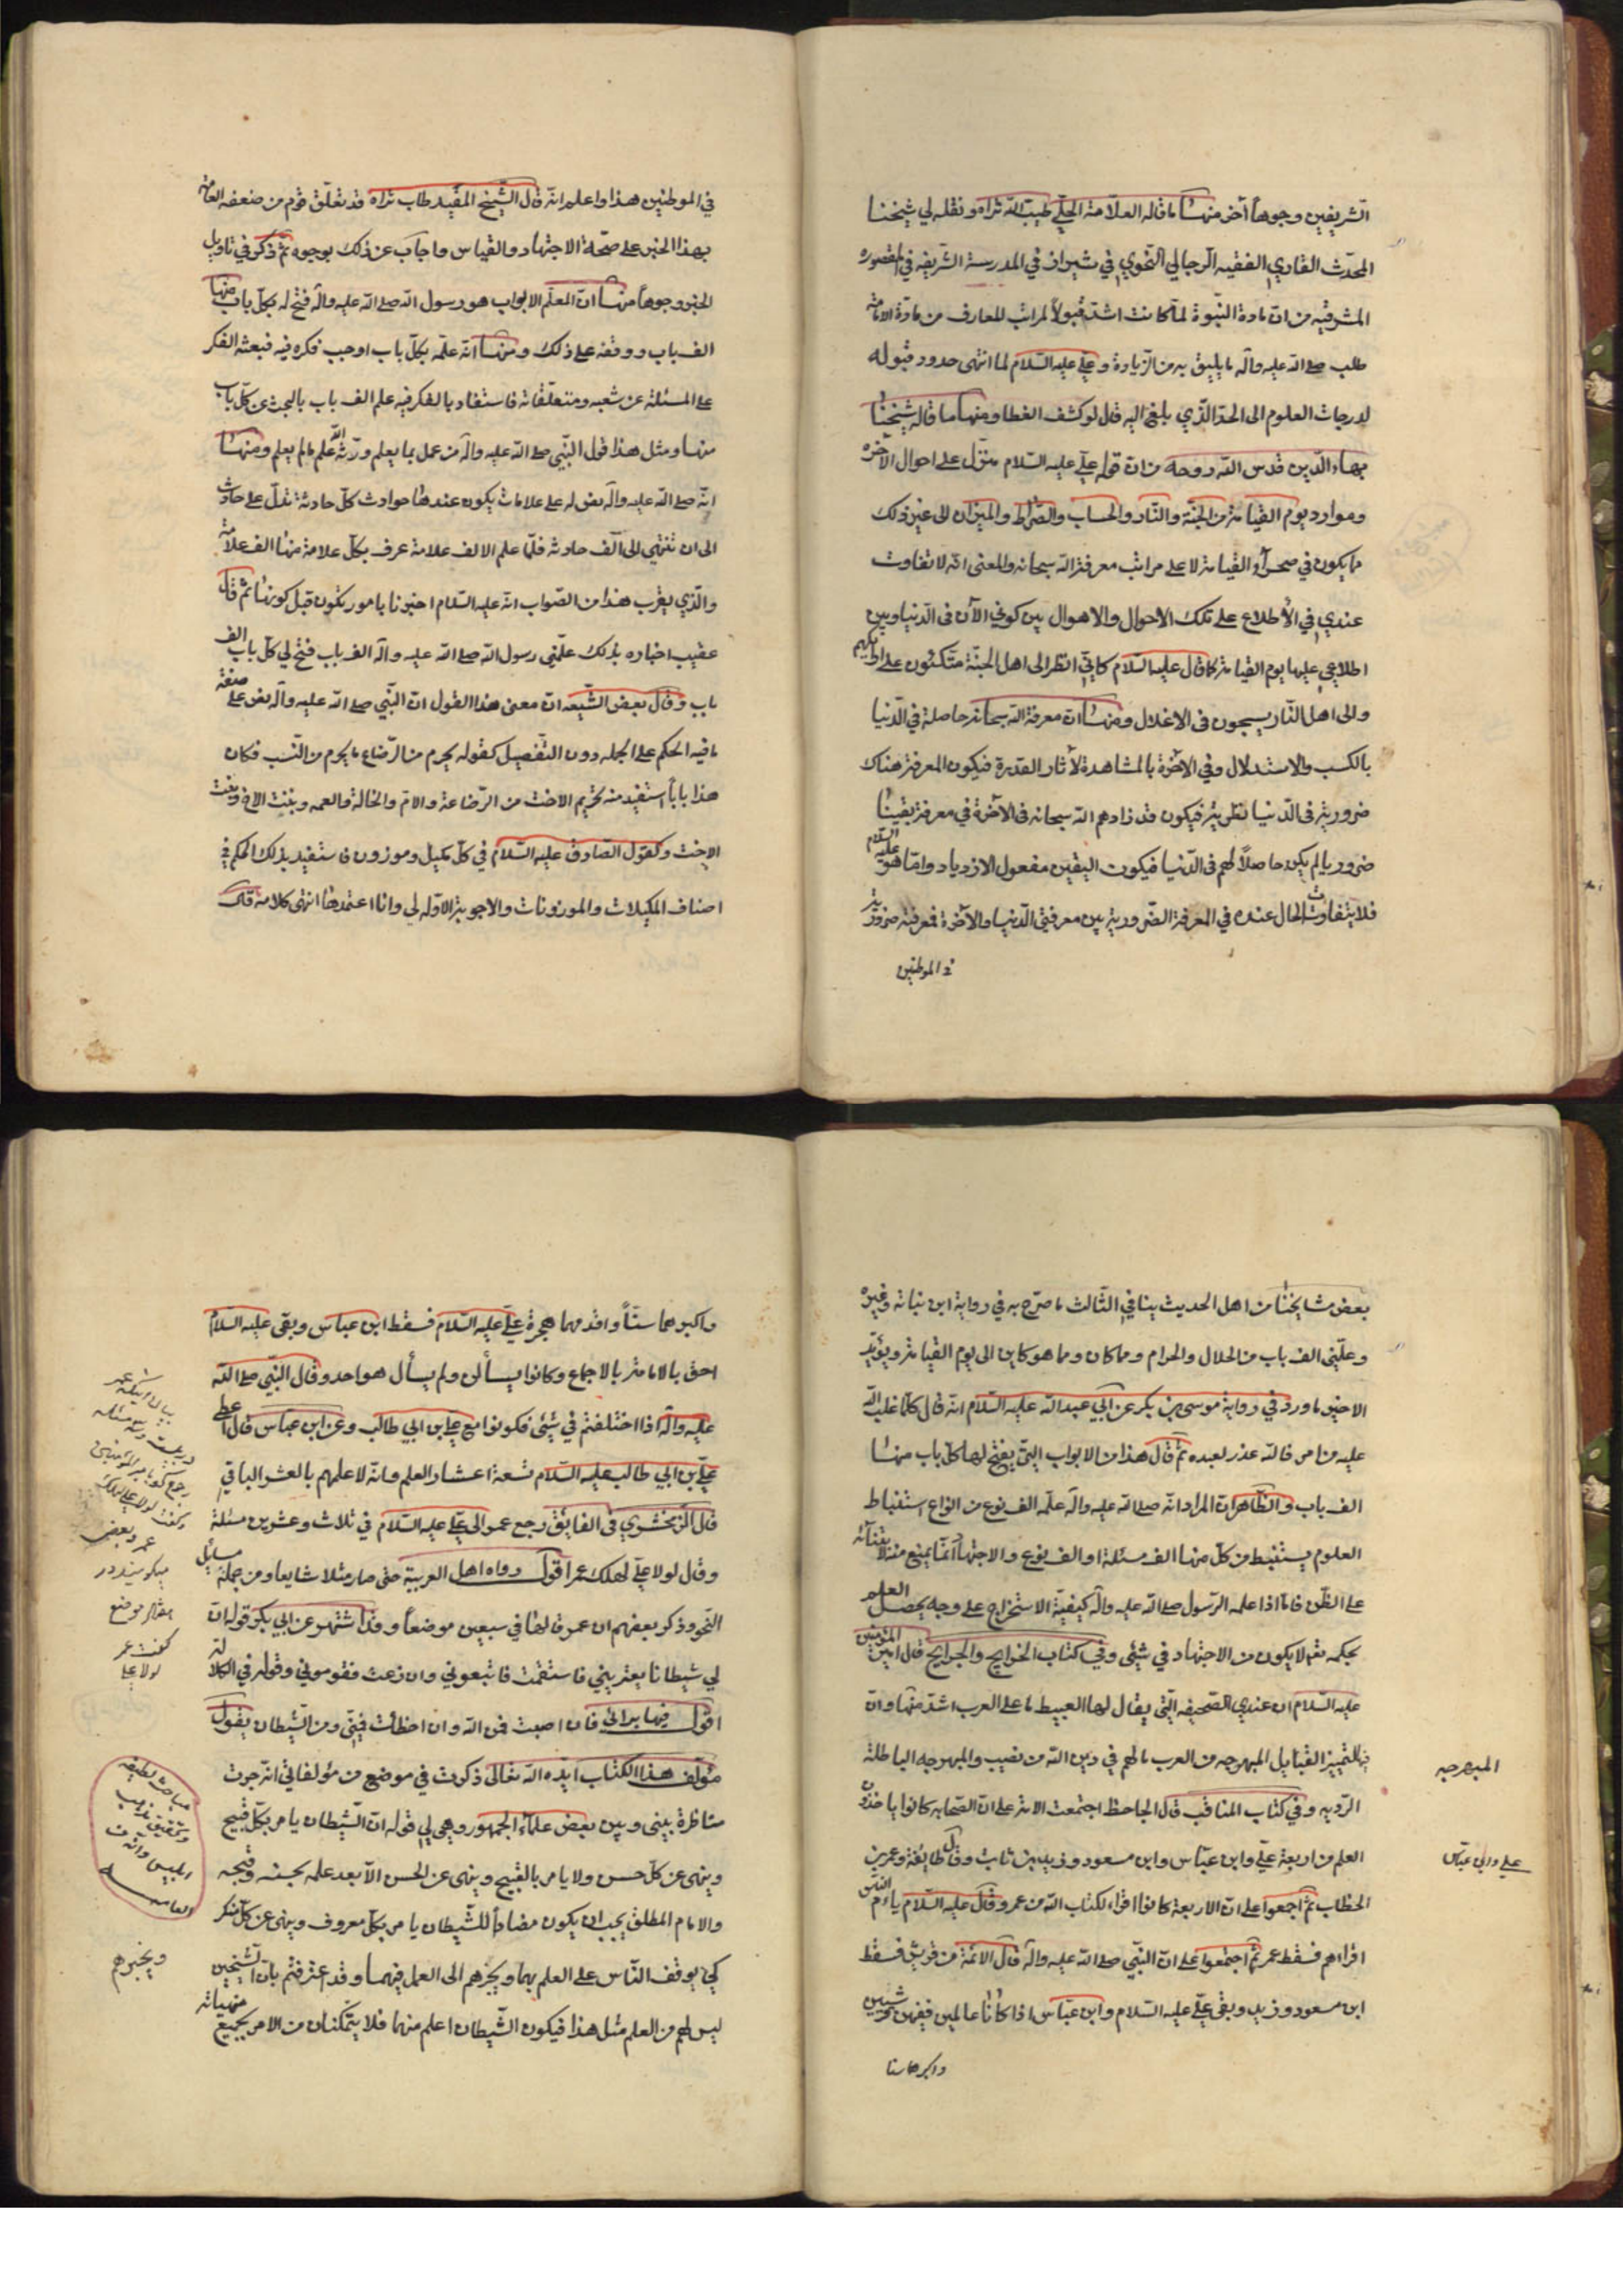 الشريفين وجوهاً أخر منها ما قاله العلامة الحلي طيب الله ثراه ونقله لي شيخنا
المحدث القاري الفقيه الرجالي النحوي في شيراز في المدرسة الشريفه في المقصوره
المشرقيه من ان مادة النبوة لما كانت اشد قبولاً لمراتب المعارف من مادة الامامة
طلب صلى الله عليه وآله ما يليق به من الزيادة وعلي عليه السلام لما انتهى حدود قبوله
لدرجات العلوم الى الحد الذي بلغ اليه قال لو كشف الغطا ومنها ما قاله شيخنا
بهاء الدين قدس الله روحه من ان قوله علي عليه السلام منزل على احوال الآخره
وموارد يوم القيامة من الجنة والنار والحساب والصراط والميزان الى غير ذلك
ما يكون في صحرآء القيامة لا على مراتب معرفة الله سبحانه والمعنى انه لا تفاوت
عندي في الأطلاع على تلك الاحوال والاهوال بين كوني الآن في الدنيا وبين
اطلاعي عليها يوم القيامة كما قال عليه السلام كاني انظر الى اهل الجنة متكئون على ارائكهم
والى اهل النار يسحبون في الاغلال ومنها ان معرفة الله سبحانه حاصلة في الدنيا
بالكسب والاستدلال وفي الآخرة بالمشاهدة لآثار القدرة فيكون المعرفة هناك
ضرورية في الدنيا نظرية فيكون قد زادهم الله سبحانه في الآخرة في معرفة يقينا
ضروريا لم يكن حاصلاً لهم في الدنيا فيكون اليقين مفعول الازدياد واما هو عليه السلام
فلا يتفاوت الحال عنده في المعرفة الضرورية بين معرفتي الدنيا والآخرة فمعرفته ضرورية
في الموطنين
في الموطنين هذا واعلم انه قال الشيخ المفيد طاب ثراه قد تعلق قوم من ضعفه العامة
بهذا الخبر على صحة الاجتهاد والقياس واجاب عن ذلك بوجوه ثم ذكر في تاويل
الخبر وجوهاً منها ان المعلم الابواب هو رسول الله صلى الله عليه وآله فتح له بكل باب منها
الف باب ووقفه على ذلك ومنها انه علمه بكل باب اوجب فكره فيه فبعثه الفكر
على المسئلة عن شعبه ومتعلقاته فاستفاد بالفكر فيه علم الف باب بالبحث عن كل باب
منها ومثل هذا قول النبي صلى الله عليه وآله من عمل بما يعلم ورثه الله علم ما لم يعلم ومنها
انه صلى الله عليه وآله نص له على علامات يكون عندها حوادث كل حادثة تدل على حادث
الى ان تنتهي الى الف حادثه فلما علم الالف علامة عرف بكل علامة منها الف علامة
والذي يقرب هذا من الصواب انه عليه السلام اخبرنا بامور تكون قبل كونها ثم قال
عقيب اخباره بذلك علمني رسول الله صلى الله عليه وآله الف باب فتح لي كل باب الف
باب وقال بعض الشيعه ان معنى هذا القول ان النبي صلى الله عليه وآله نص على صفة
ما فيه الحكم على الجمله دون التفصيل كقوله يحرم من الرضاع ما يحرم من النسب فكان
هذا باباً استفيد منه تحريم الاخت من الرضاعة والام والخالة والعمه وبنت الاخ وبنت
الاخت وكقول الصادق عليه السلام في كل مكيل وموزون فاستفيد بذلك الحكم في
اصناف المكيلات والموزونات والاجوبة الاوله لي وانا اعتمدها انتهى كلامه قال
بعض مشايخنا من اهل الحديث ينافي الثالث ما صرح به في رواية ابن نباتة وغيره
وعلمني الف باب من الحلال والحرام وما كان وما هو كاين الى يوم القيامة ويؤيد
الاخير ما ورد في رواية موسى بن بكر عن ابي عبد الله عليه السلام انه قال كلما غلب الله
عليه من امر فالله عذر لعبده ثم قال هذا من الابواب التي يفتح لها كل باب منها
الف باب والظاهر ان المراد انه صلى الله عليه وآله علمه الف نوع من انواع استنباط
العلوم يستنبط من كل منها الف مسئلة او الف نوع والاجتهاد انما يمنع منه لابتنائه
على الظن فاما اذا علمه الرسول صلى الله عليه وآله كيفية الاستخراج على وجه يحصل العلم
بحكمه تعالى لا يكون من الاجتهاد في شئ وفي كتاب الخرايج والجرايح قال امير المؤمنين
عليه السلام ان عندي الصحيفه التي يقال لها العبيط ما على العرب اشد منها وان
فيها لتمييز القبايل المبهرجه من العرب ما لهم في دين الله من نصيب والمبهرجه الباطلة
الرديه وفي كتاب المناقب قال الجاحظ اجتمعت الامة على ان الصحابه كانوا ياخذون
العلم من اربعة علي وابن عباس وابن مسعود وزيد بن ثابت وقال طايفة وعمر بن
الخطاب ثم اجمعوا على ان الاربعة كانوا اقراء لكتاب الله من عمر وقال عليه السلام يا ام الناس
اقراهم فسقط عمر ثم اجتمعوا على ان النبي صلى الله عليه وآله قال الائمة من قريش فسقط
ابن مسعود وزيد وبقي علي عليه السلام وابن عباس اذا كانا عالمين فقيهين قرشيين
واكبرهما سنا
المبهرجه
علي وابن عباس
واكبرهما سناً واقدمهما هجرة علي عليه السلام فسقط ابن عباس وبقى عليه السلام
احق بالامامة بالاجماع وكانوا يسألن ولم يسأل هو احد وقال النبي صلى الله
عليه وآله اذا اختلفتم في شئ فكونوا مع علي بن ابي طالب وعن ابن عباس قال اعطى
علي بن ابي طالب عليه السلام تسعة اعشار العلم وانه لاعلمهم بالعشر الباقي
قال الزمخشري في الفايق رجع عمر الى علي عليه السلام في ثلاث وعشرين مسئلة
وقال لولا علي لهلك عمر اقول رواه اهل العربية حتى صار مثلا شايعا ومن جملة مسائل
النحو وذكر بعضهم ان عمر قالها في سبعين موضعاً وقد اشتهر عن ابي بكر قوله ان
لي شيطانا يعتريني فاستقمت فاتبعوني وان زغت فقوموني وقوله في الكلالة
اقول فيها برائي فان اصبت فمن الله وان اخطأت فمني ومن الشيطان يقول
مؤلف هذا الكتاب ايده الله تعالى ذكرت في موضع من مؤلفاتي انه جرت
مناظرة بيني وبين بعض علماء الجمهور وهي لي قوله ان الشيطان يامر بكل قبيح
وينهى عن كل حسن ولا يامر بالقبيح وينهى عن الحسن الا بعد علمه بحسنه وقبحه
والامام المطلق يجب ان يكون مضاداً للشيطان يامر بكل معروف وينهى عن كل منكر
كي يوقف الناس على العلم بهما ويجرهم الى العمل فيهما وقد اعترفتم بان الشيخين
ليس لهم من العلم مثل هذا فيكون الشيطان اعلم منهما فلا يتمكنان من الامر بجميع منهياته
عمر وبعضى
ميكويند در
هفتاد موضع
گفت عمر
لولا علي
مباحث لطيفه
ويخبرهم